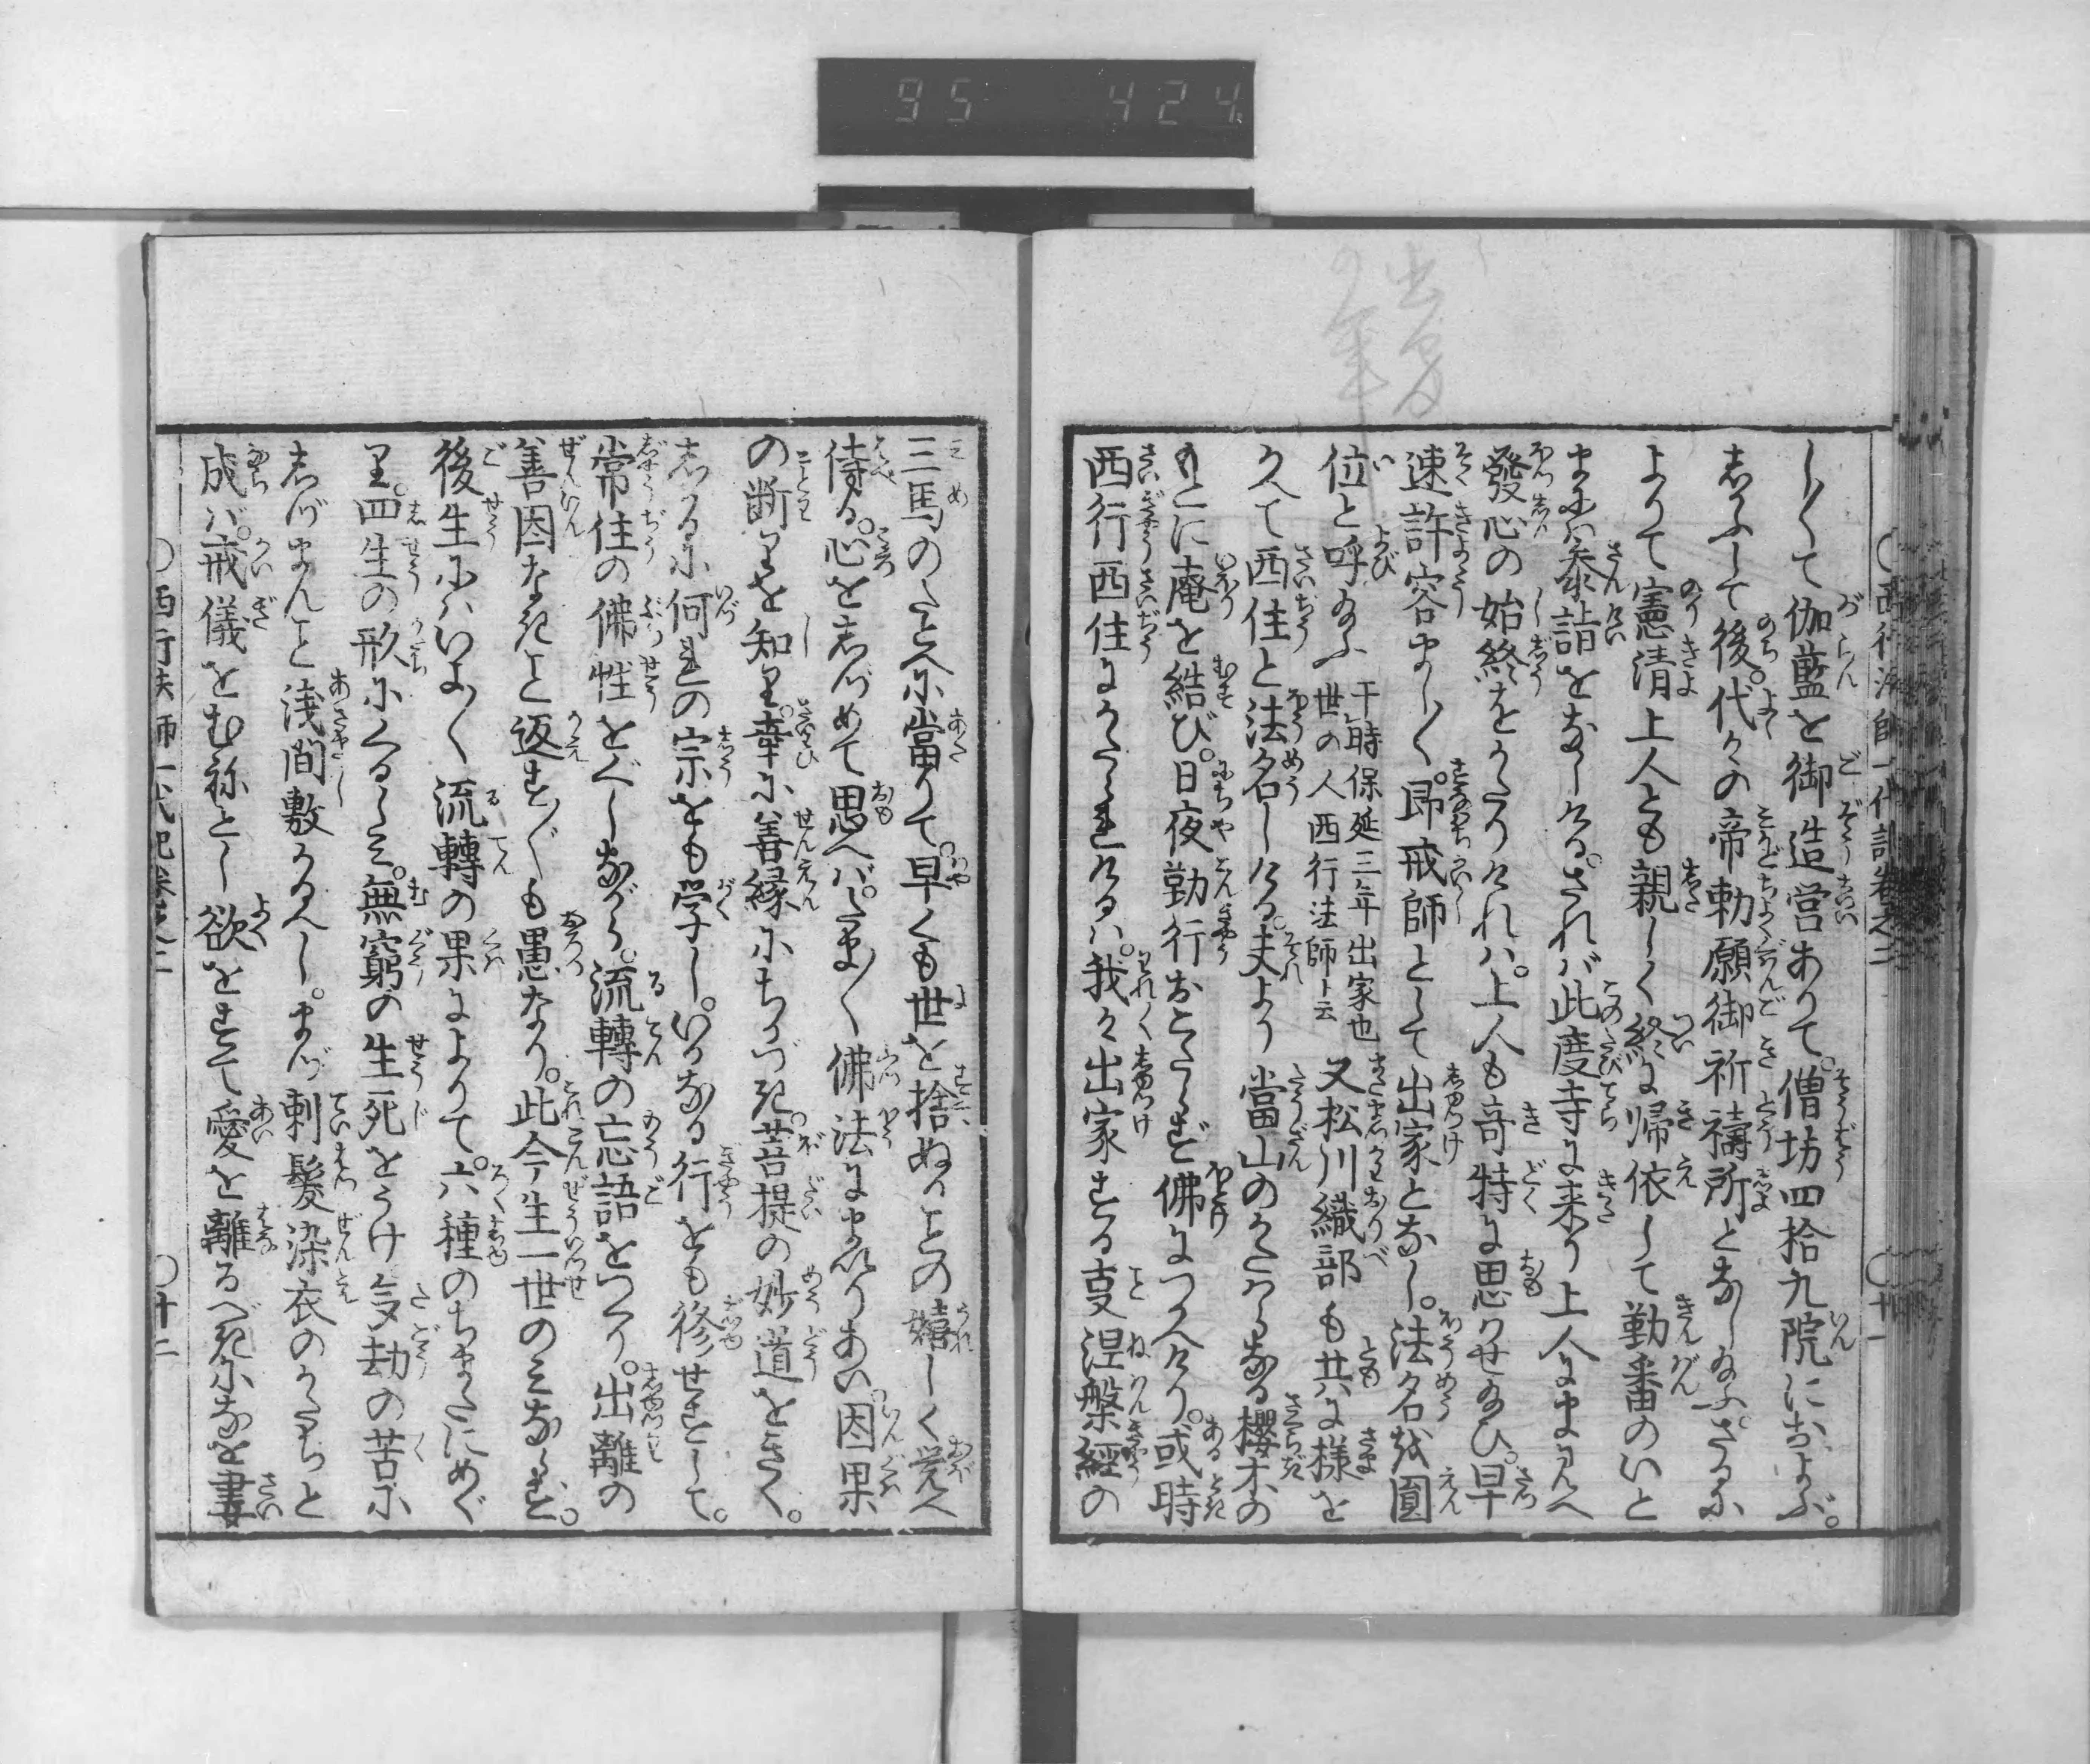 95 424
出家
の年
西行法師一代記巻之二 十一
しくて伽藍を御造営ありて。僧坊四拾九院におよぶ。
しかふして後。代々の帝勅願御祈禱所となし給ふ。さるに
よりて憲清上人とも親しく終に帰依して勤番のいと
まには参詣をなしける。されば此度寺に来り上人にまみへ
發心の始終をかたりければ。上人も奇特に思はせ給ひ。早
速許容ましく。即戒師として出家となし。法名を圓
位と呼給ふ 于時保延三年出家也
世の人西行法師ト云 又松川織部も共に様を
かへて西住と法名しける。夫より當山のかたはらなる櫻木の
もとに庵を結び。日夜勤行おこたらず佛につかへけり。或時
西行西住にかたられけるは。我々出家する事涅槃經の
三馬のたとへに當りて。早くも世を捨ぬことの嬉しく覚へ
侍る。心をしづめて思へば。たまく佛法にまいりあい因果
の断りを知り。幸に善縁にちかづき。菩提の妙道をきく。
しかるに何れの宗をも学し。いかなる行をも修せずして。
常住の佛性をぐしながら。流轉の忘語をつくり。出離の
善因なきこと返すぐも愚なり。此今生一世のみならず。
後生にはいよく流轉の果によりて。六種のちまたにめぐ
り。四生の形にくるしみ。無窮の生死をうけ多劫の苦に
しづまんこと浅間敷かるべし。まづ剃髪染衣のかたちと
成ば。戒儀をむねとし欲をすて愛を離るべきになを妻
西行法師一代記巻之二 十二